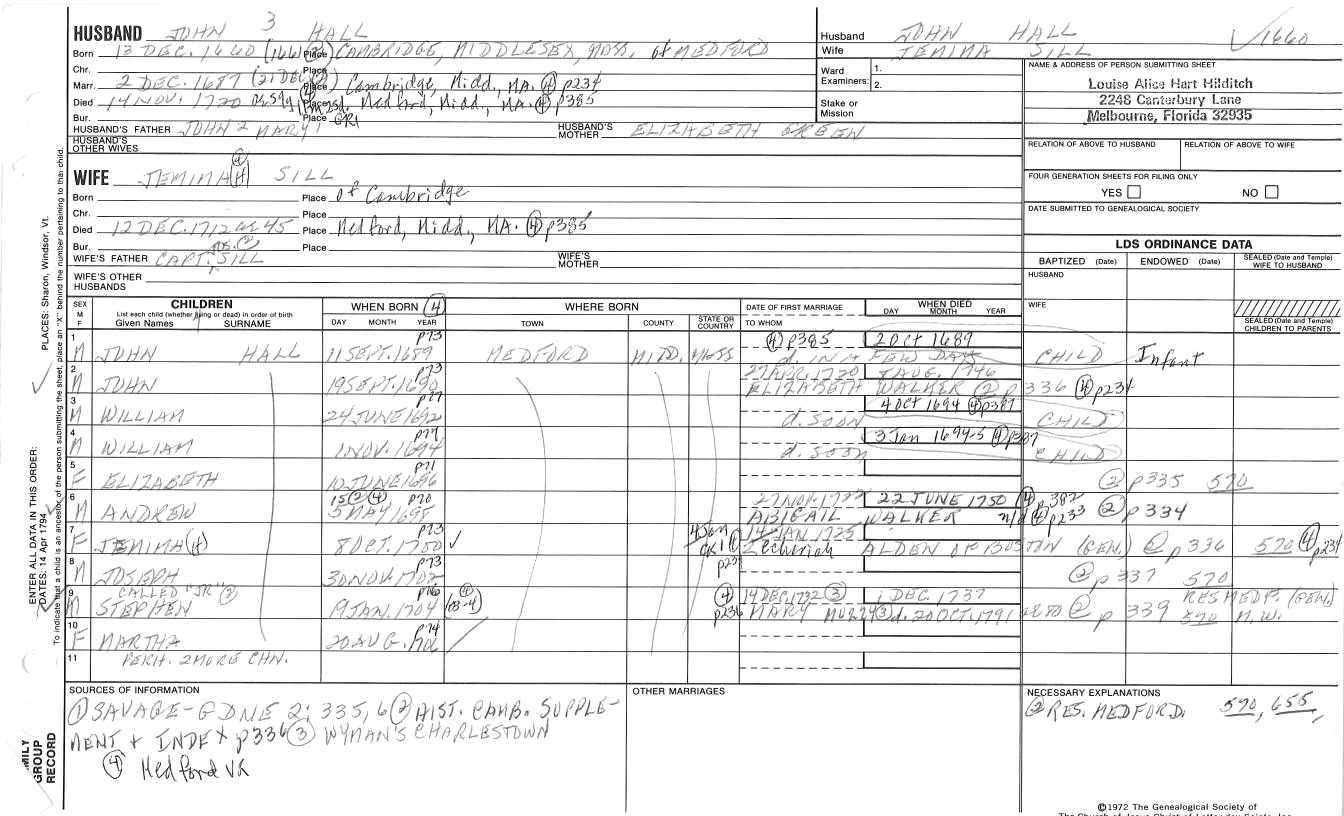 HUSBAND JOHN 3 HALL
Born 13 DEC. 1660 (1661 ②) Place CAMBRIDGE, MIDDLESEX, MASS. of MEDFORD
Chr. Place
Marr. 2 DEC. 1687 (21 DEC ②) Place Cambridge, Midd., MA. ④ p234
Died 14 NOV. 1720 Place Medford, Midd., MA. ④ p385
Bur. Place GR1
HUSBAND'S FATHER JOHN 2 MARY 1 HUSBAND'S MOTHER ELIZABETH GREEN
HUSBAND'S OTHER WIVES
WIFE JEMIMA(H) ④ SILL
Born Place of Cambridge
Chr. Place
Died 12 DEC. 1712 ae 45 Place Medford, Midd., MA. ④ p385
Bur. Place
WIFE'S FATHER CAPT. JOS. ② SILL WIFE'S MOTHER
WIFE'S OTHER HUSBANDS
Husband JOHN HALL 1660
Wife JEMIMA SILL
Ward Examiners: 1. 2.
Stake or Mission
NAME & ADDRESS OF PERSON SUBMITTING SHEET
Louise Alice Hart Hilditch
2248 Canterbury Lane
Melbourne, Florida 32935
RELATION OF ABOVE TO HUSBAND RELATION OF ABOVE TO WIFE
FOUR GENERATION SHEETS FOR FILING ONLY
YES NO
DATE SUBMITTED TO GENEALOGICAL SOCIETY
LDS ORDINANCE DATA
BAPTIZED (Date) ENDOWED (Date) SEALED (Date and Temple) WIFE TO HUSBAND
HUSBAND
WIFE
SEALED (Date and Temple) CHILDREN TO PARENTS
SEX M F CHILDREN WHEN BORN ④ WHERE BORN DATE OF FIRST MARRIAGE WHEN DIED
List each child (whether living or dead) in order of birth
Given Names SURNAME DAY MONTH YEAR TOWN COUNTY STATE OR COUNTRY TO WHOM DAY MONTH YEAR
1 M JOHN HALL 11 SEPT. 1689 p73 MEDFORD MIDD. MASS ④ p385 2 Oct 1689 d. IN A FEW DAYS CHILD Infant
2 M JOHN 19 SEPT. 1690 p73 27 APR. 1720 AUG. 1746 ELIZABETH WALKER ② p 336 ④ p234
3 M WILLIAM 24 JUNE 1692 d. SOON 4 Oct 1694 ④ p387 CHILD
4 M WILLIAM 1 NOV. 1694 d. soon 3 Jan 1694-5 ④ p387 CHILD
5 F ELIZABETH 10 JUNE 1696 p71 ② p335 570
6 M ANDREW 5 MAY 1698 15 ② ④ p70 27 NOV. 1722 22 JUNE 1750 ④ p382 ABIGAIL WALKER ④ p233 ② p334
7 F JEMIMA(H) 8 OCT. 1700 p73 4 Jan GR1 14 JAN 1725 Zechariah ALDEN OF BOSTON (GEN.) ② p 336 570 ④ p234
8 M JOSEPH 30 NOV. 1702 p73 ② p 337 570
9 M CALLED "JR" ② STEPHEN 19 JAN. 1704 p76 (03-4) ④ ④ p236 14 DEC. 1732 ③ 1 DEC. 1737 MARY ③ d. 20 OCT. 1791 ae 80 ② p 339 570 RES MEDF. (GEN.) N.W.
10 F MARTHA 20 AUG. 1706 p74
11 PERH. 2 MORE CHN.
SOURCES OF INFORMATION
① SAVAGE-GDNE 2: 335, 6 ② HIST. CAMB. SUPPLE-
MENT + INDEX p336 ③ WYMAN'S CHARLESTOWN
④ Medford VR
OTHER MARRIAGES
NECESSARY EXPLANATIONS
② RES. MEDFORD. 570, 655,
©1972 The Genealogical Society of
The Church of Jesus Christ of Latter-day Saints, Inc.
ENTER ALL DATA IN THIS ORDER:
DATES: 14 Apr 1794 PLACES: Sharon, Windsor, Vt.
To indicate that a child is an ancestor of the person submitting the sheet, place an "X" behind the number pertaining to that child.
MILY GROUP RECORD